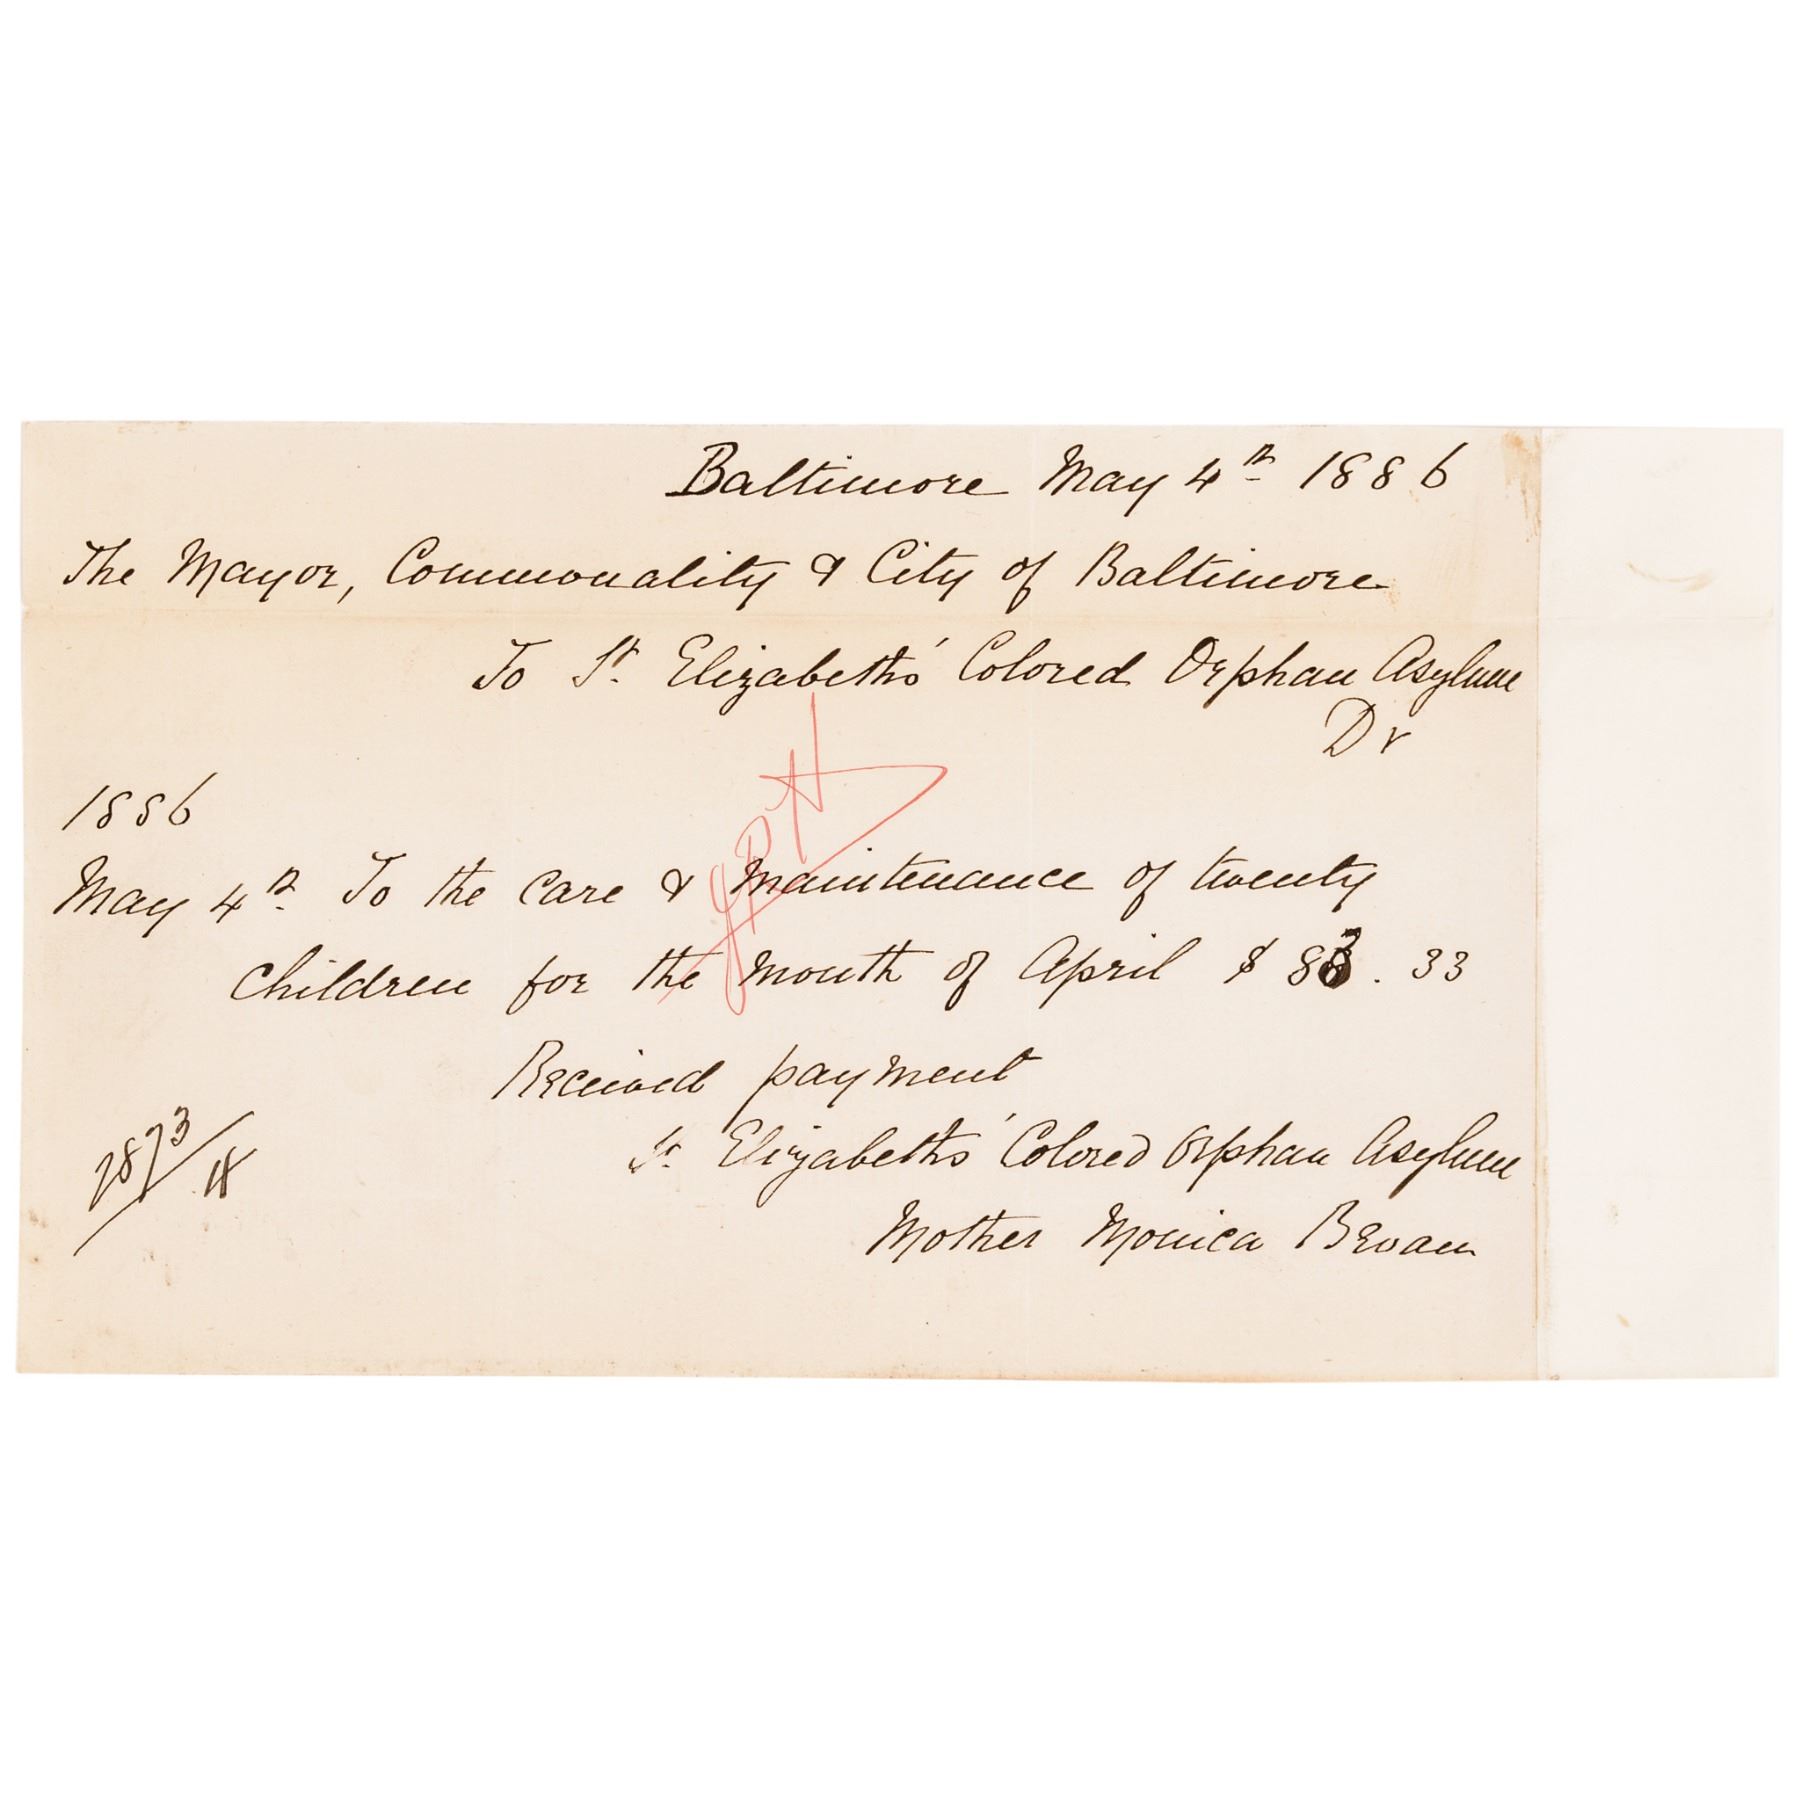 Baltimore May 4th 1886
The Mayor, Commonality & City of Baltimore
To St. Elizabeth's Colored Orphan Asylum
Dr
1886
May 4th. To the care & Maintenance of twenty
children for the month of April $ 83.33
Received payment
St. Elizabeth's Colored Orphan Asylum
Mother Monica Bevan
2873/18